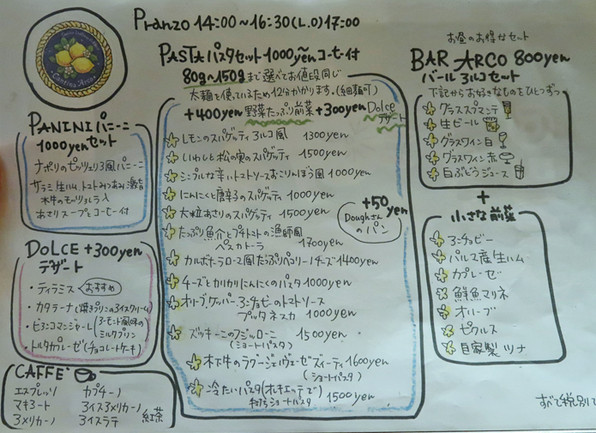 Pranzo 14:00~16:30(L.O)17:00
PASTA パスタセット 1000yen~ コーヒー付
80g~150gまで選べてお値段同じ
太麺を使っているため12分かかります。(細麺可)
+400yen 野菜たっぷり前菜 +300yen Dolce
デザート
レモンのスパゲッティ アルコ風 1300yen
いわしと松の実のスパゲッティ 1500yen
シンプルな辛いトマトソースおこりんぼう風 1000yen
にんにくと唐辛子のスパゲッティ 1000yen
大粒あさりのスパゲッティ 1500yen
たっぷり魚介とプチトマトの漁師風
ペスカトーラ 1700yen
カルボナーラローマ風 たっぷりパンチェッタ・チーズ 1400yen
チーズとカリカリにんにくのパスタ 1000yen
オリーブ、ケッパー、アンチョビーのトマトソース
プッタネスカ 1000yen
ズッキーニのフジッローニ 1500yen
(ショートパスタ)
木下牛のラグージェノヴェーゼ ズィーティ 1600yen
(ショートパスタ)
冷たいパスタ(オレキエッテで)
ショートパスタ 1500yen
+50yen
Doughさん
のパン
PANINI パニーニ
1000yenセット
ナポリのピッツェリア風パニーニ
サラミ 生ハム トマト
水牛のモッツァレラ入
あさりスープとコーヒー付
DOLCE +300yen
デザート
・ティラミス おすすめ
・カタラーナ(焼きプリンのアイスクリーム)
・ビアンコマンジャーレ(アーモンド風味のミルクプリン)
・トルタカプレーゼ(チョコレートケーキ)
CAFFÈ
エスプレッソ カプチーノ
マキアート アイスアメリカーノ 紅茶
アメリカーノ アイスラテ
お昼のお得なセット
BAR ARCO 800yen
バール アルコセット
下記からお好きなものをひとつずつ
グラススプマンテ
生ビール
グラスワイン白
グラスワイン赤
白ぶどうジュース
+
小さな前菜
アンチョビー
パルマ産生ハム
カプレーゼ
鮮魚マリネ
オリーブ
ピクルス
自家製ツナ
すべて税別